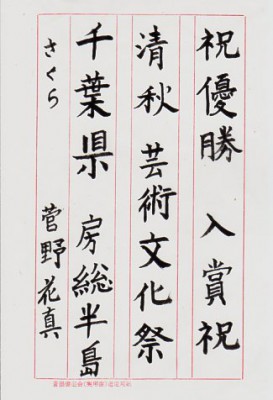 祝優勝 入賞祝
清秋 芸術文化祭
千葉県 房総半島
さくら 菅野花真